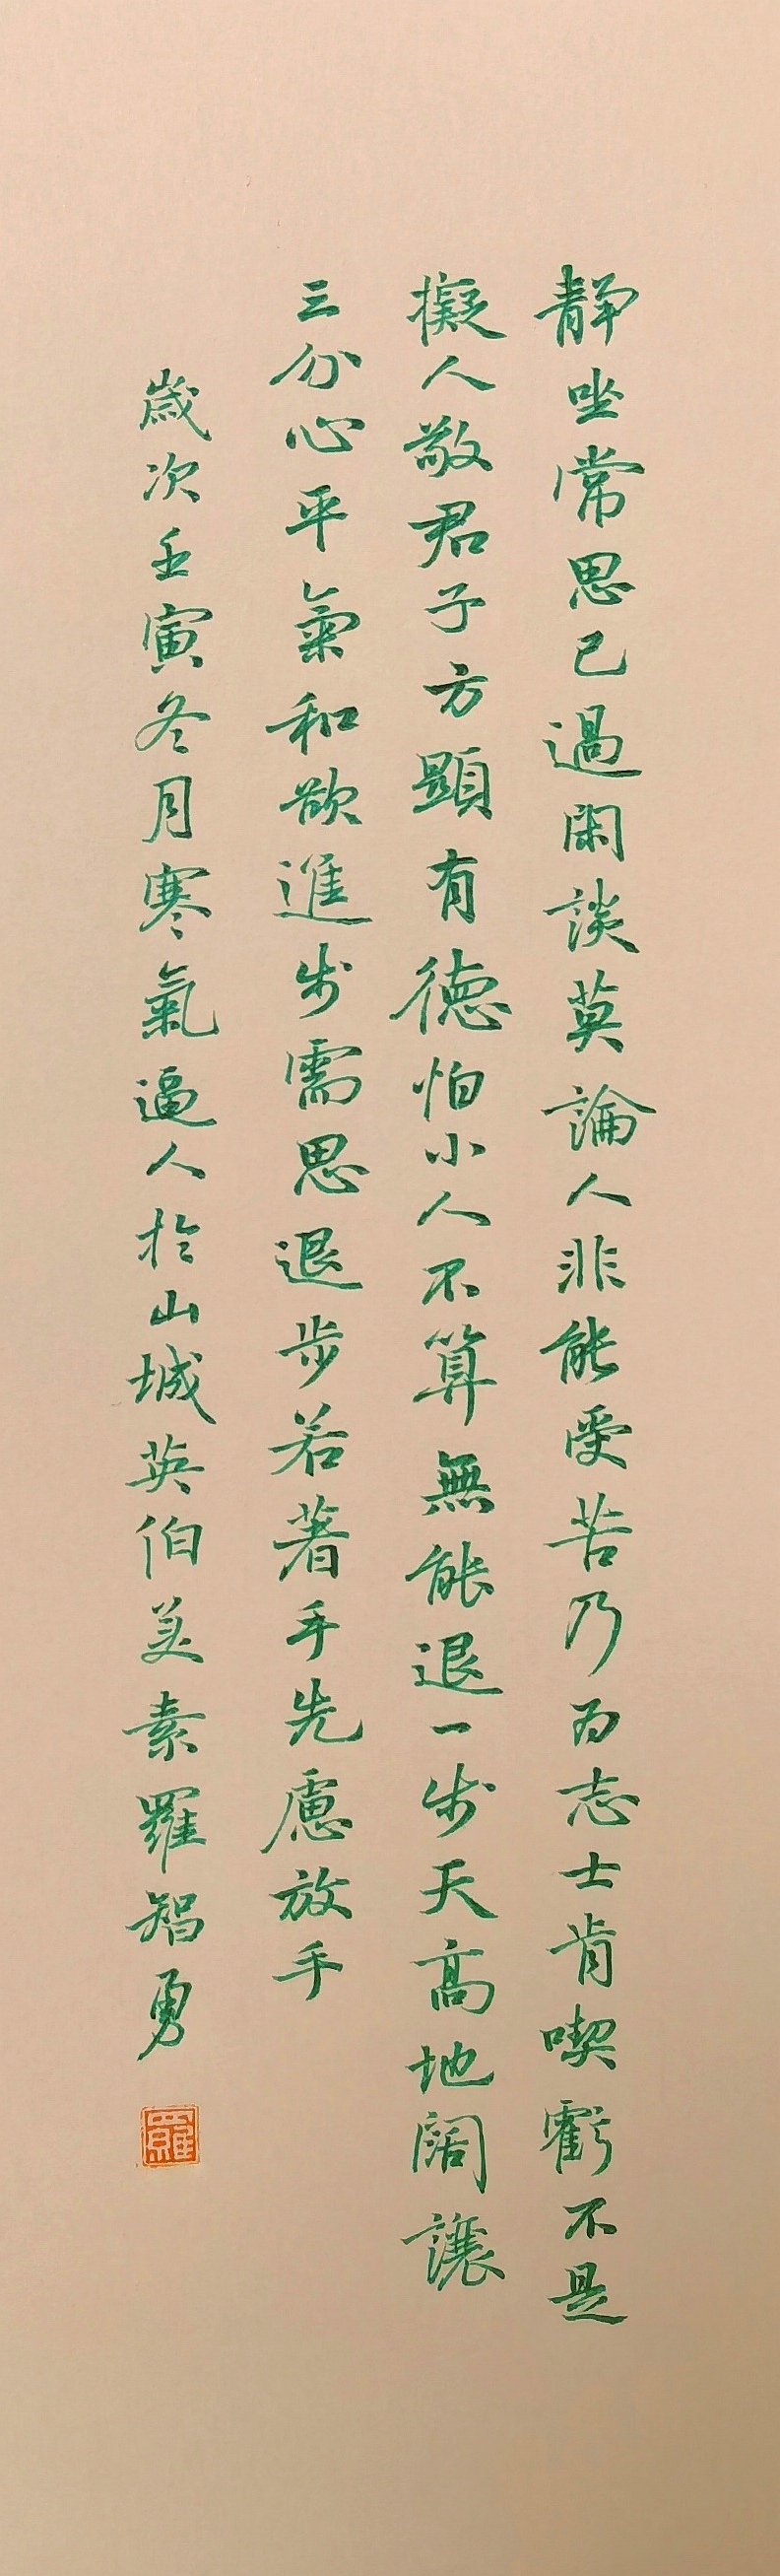 靜坐常思己過閑談莫論人非能受苦乃為志士肯喫虧不是
擬人敬君子方顯有德怕小人不算無能退一步天高地闊讓
三分心平氣和欲進步需思退步若著手先慮放手
歲次壬寅冬月寒氣逼人於山城英伯美素羅智勇
羅